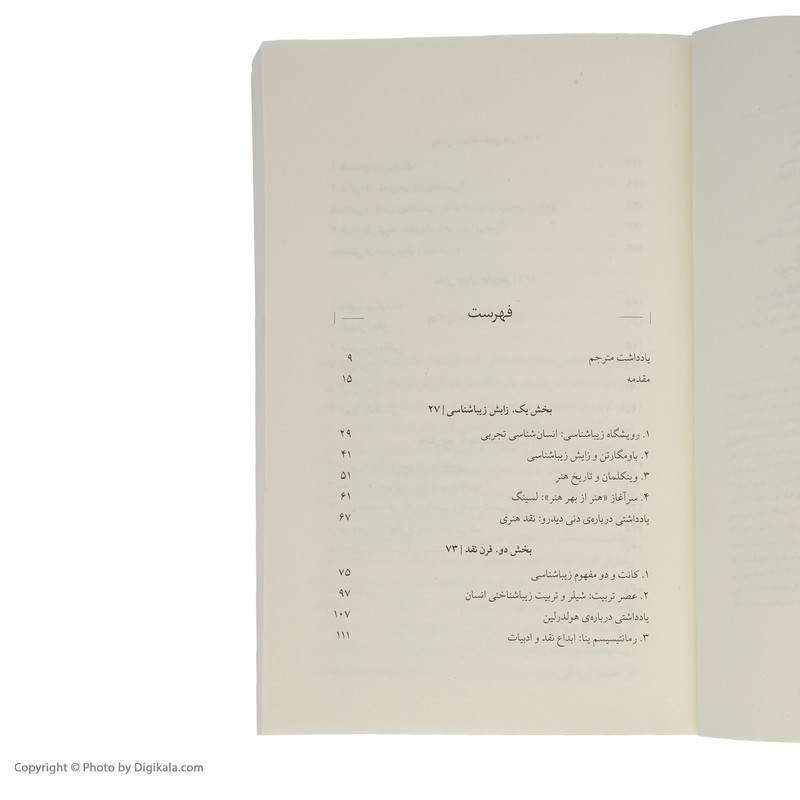 فهرست
یادداشت مترجم ۹
مقدمه ۱۵
بخش یک. زایش زیباشناسی | ۲۷
۱. رویشگاه زیباشناسی: انسان‌شناسی تجربی ۲۹
۲. باومگارتن و زایش زیباشناسی ۴۱
۳. وینکلمان و تاریخ هنر ۵۱
۴. سرآغاز «هنر از بهر هنر»: لسینگ ۶۱
یادداشتی درباره‌ی دنی دیدرو: نقد هنری ۶۷
بخش دو. قرن نقد | ۷۳
۱. کانت و دو مفهوم زیباشناسی ۷۵
۲. عصر تربیت: شیلر و تربیت زیباشناختی انسان ۹۷
یادداشتی درباره‌ی هولدرلین ۱۰۷
۳. رمانتیسیسم ینا: ابداع نقد و ادبیات ۱۱۱
Copyright © Photo by Digikala.com